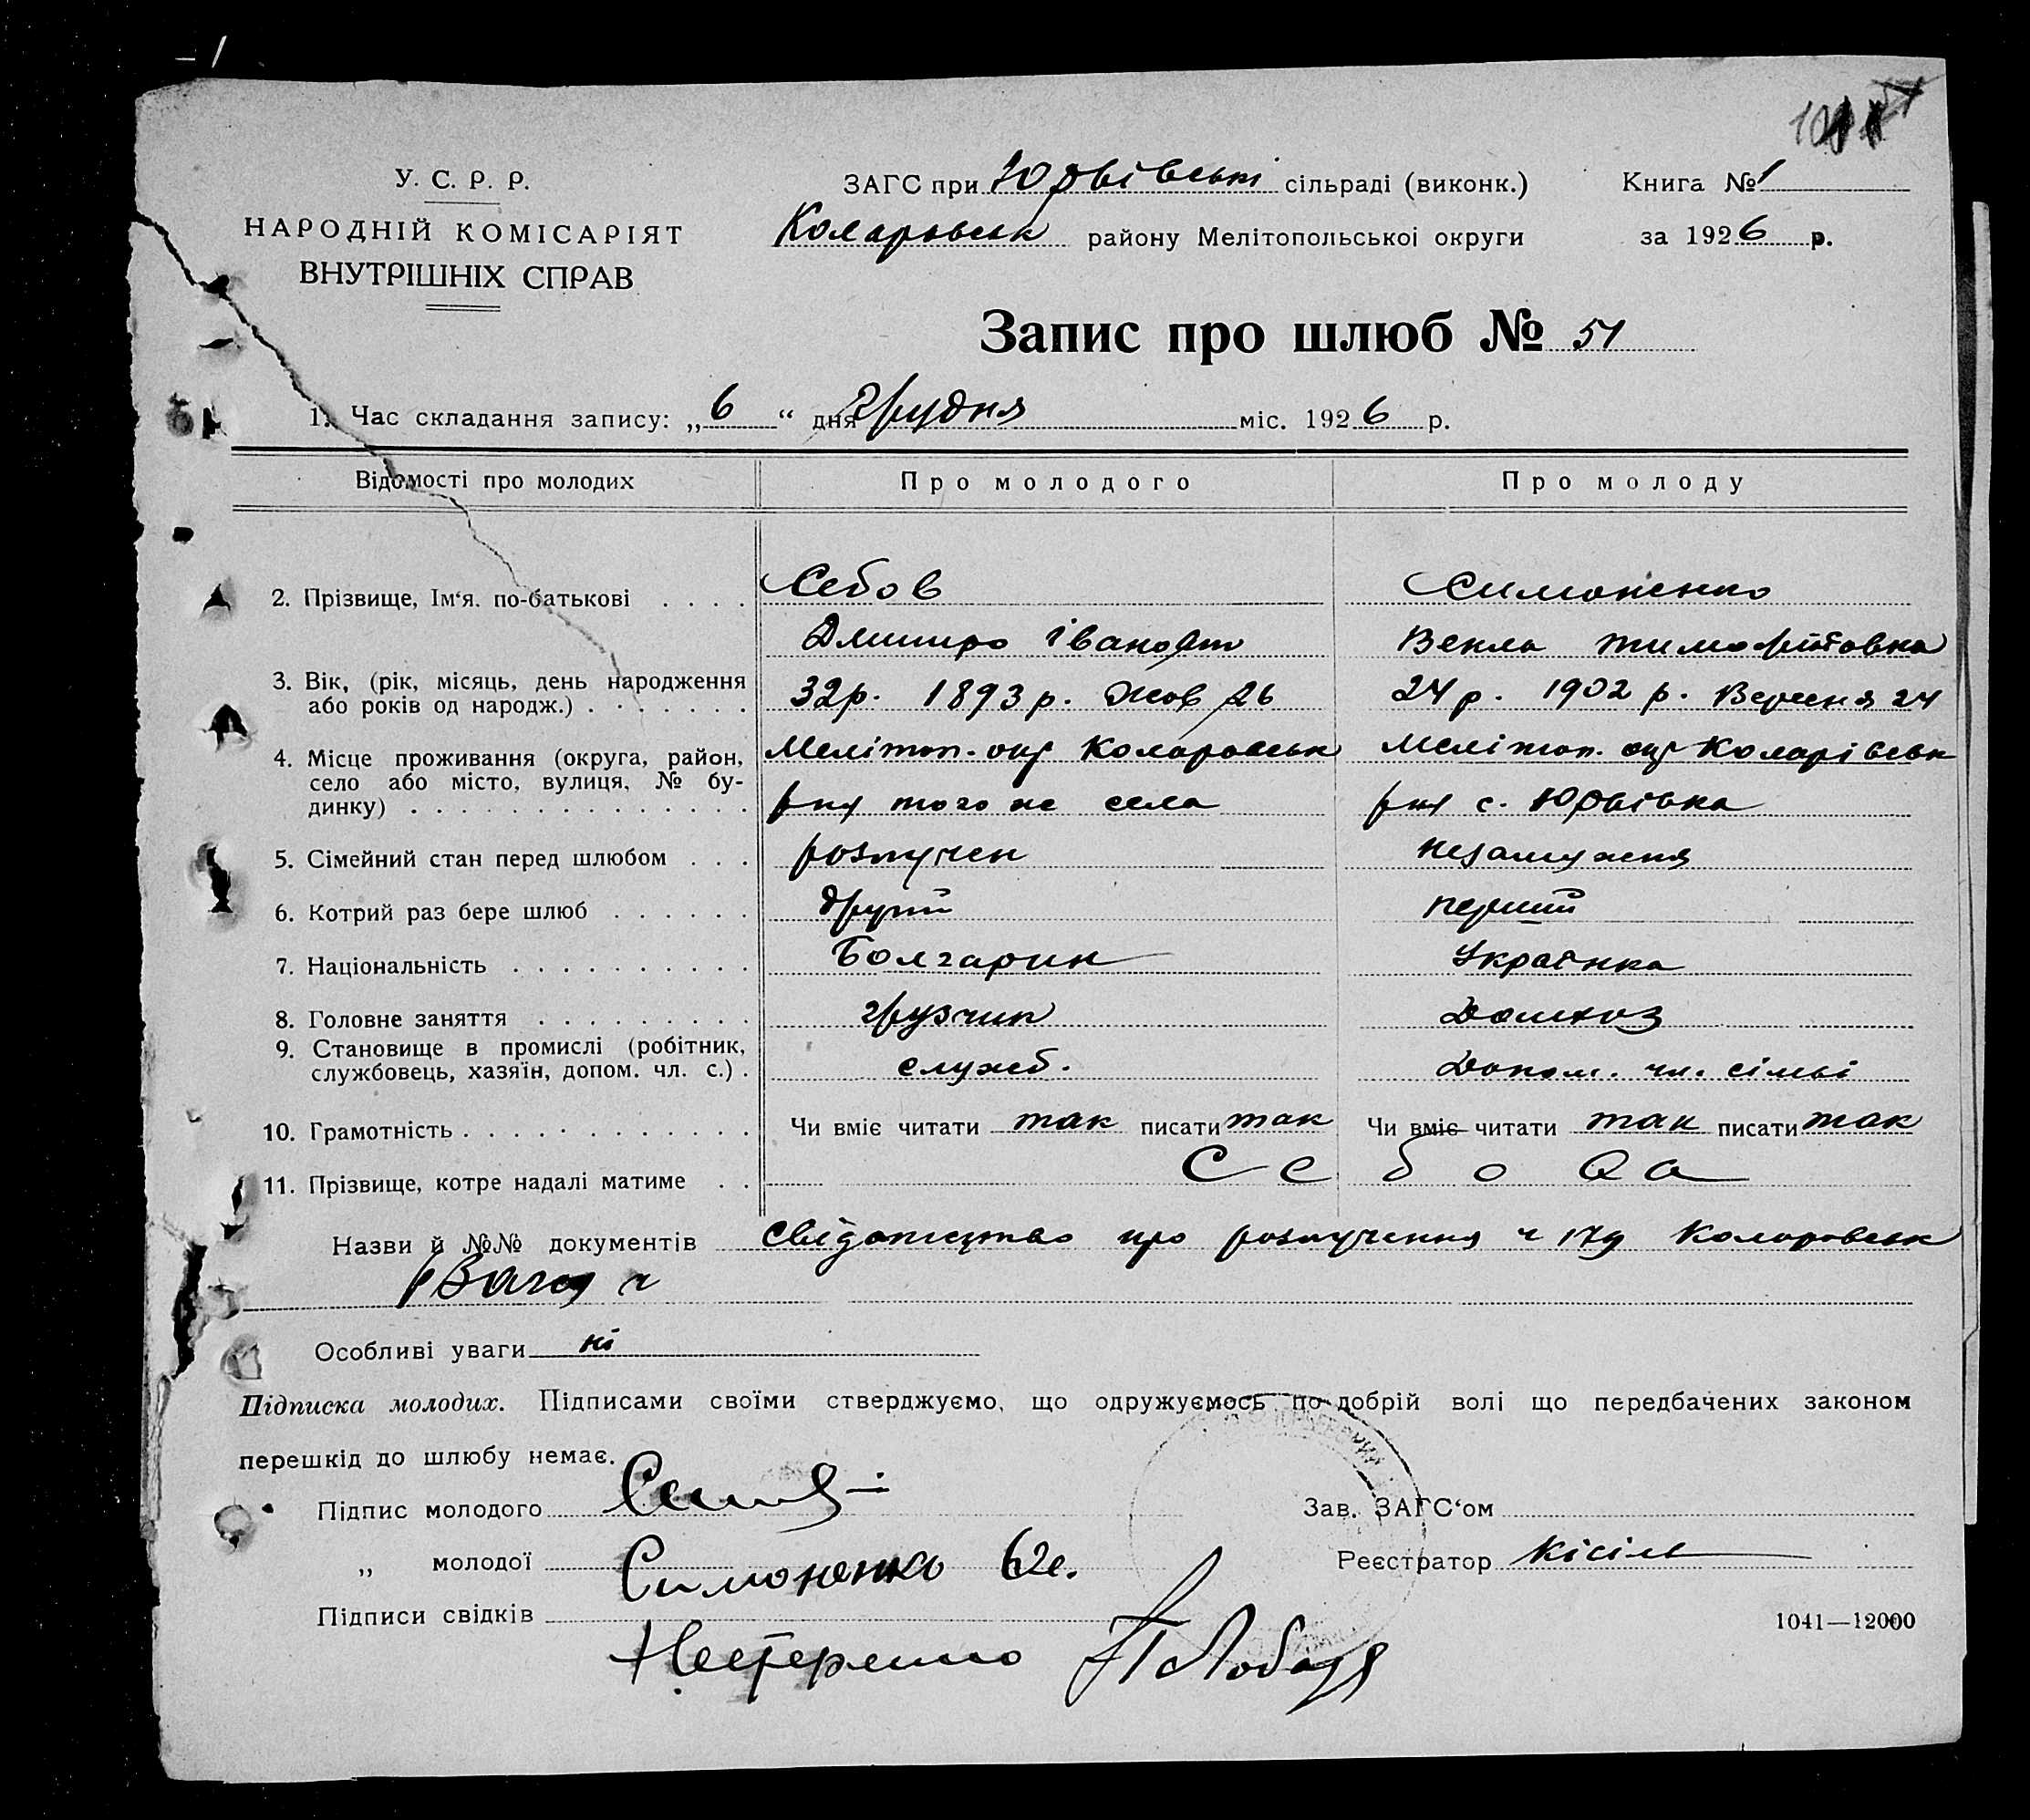 У. С. Р. Р.
НАРОДНІЙ КОМІСАРІЯТ
ВНУТРІШНІХ СПРАВ
ЗАГС при Юрвівські сільраді (виконк.)
Коларовськ району Мелітопольськоі округи
Книга № 1
за 1926 р.
Запис про шлюб № 51
1. Час складання запису: „6“ дня грудня міс. 1926 р.
Відомості про молодих Про молодого Про молоду
2. Прізвище, Ім‘я. по-батькові . . . . Себов Симоненко
Дмитро Іванович Векла Тимофіївовна
3. Вік, (рік, місяць, день народження
або років од народж.) 32р. 1893р. Жов 26 24 р. 1902 р. Вересня 24
4. Місце проживання (округа, район,
село або місто, вулиця, № бу-
динку) Меліточ. окр Коларовськ Мелітоп. окр Коларівськ
рну того же села рну с. Юрвівка
5. Сімейний стан перед шлюбом . . . розлучен незамужня
6. Котрий раз бере шлюб другий перший
7. Національність Болгарин Українка
8. Головне заняття грузчик Домхоз
9. Становище в промислі (робітник,
службовець, хазяїн, допом. чл. с.) . служб. Допом. чл. сімьі
10. Грамотність Чи вміє читати так писати так Чи вміє читати так писати так
11. Прізвище, котре надалі матиме . . Себова
Назви й №№ документів Свідоцтво про розлучення ч Коларовськ
Особливі уваги ні
Підписка молодих. Підписами своїми стверджуємо, що одружуємось по добрій волі що передбачених законом
перешкід до шлюбу немає.
Підпис молодого
Зав. ЗАГС‘ом
„ молодої Симоненко Ве.
Реєстратор Кісіль
Підписи свідків
1041—12000
Нестеренко П Лобода